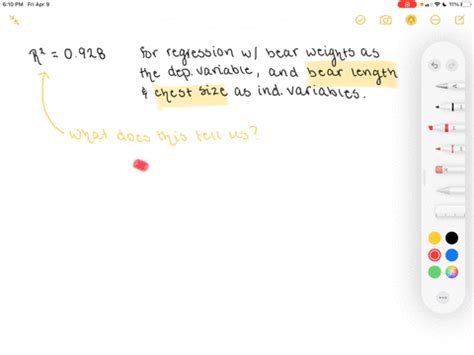 6:10 PM Fri Apr 9
11%
R² = 0.928 for regression w/ bear weights as
the dep. variable, and bear length
& chest size as ind. variables.
What does this tell us?